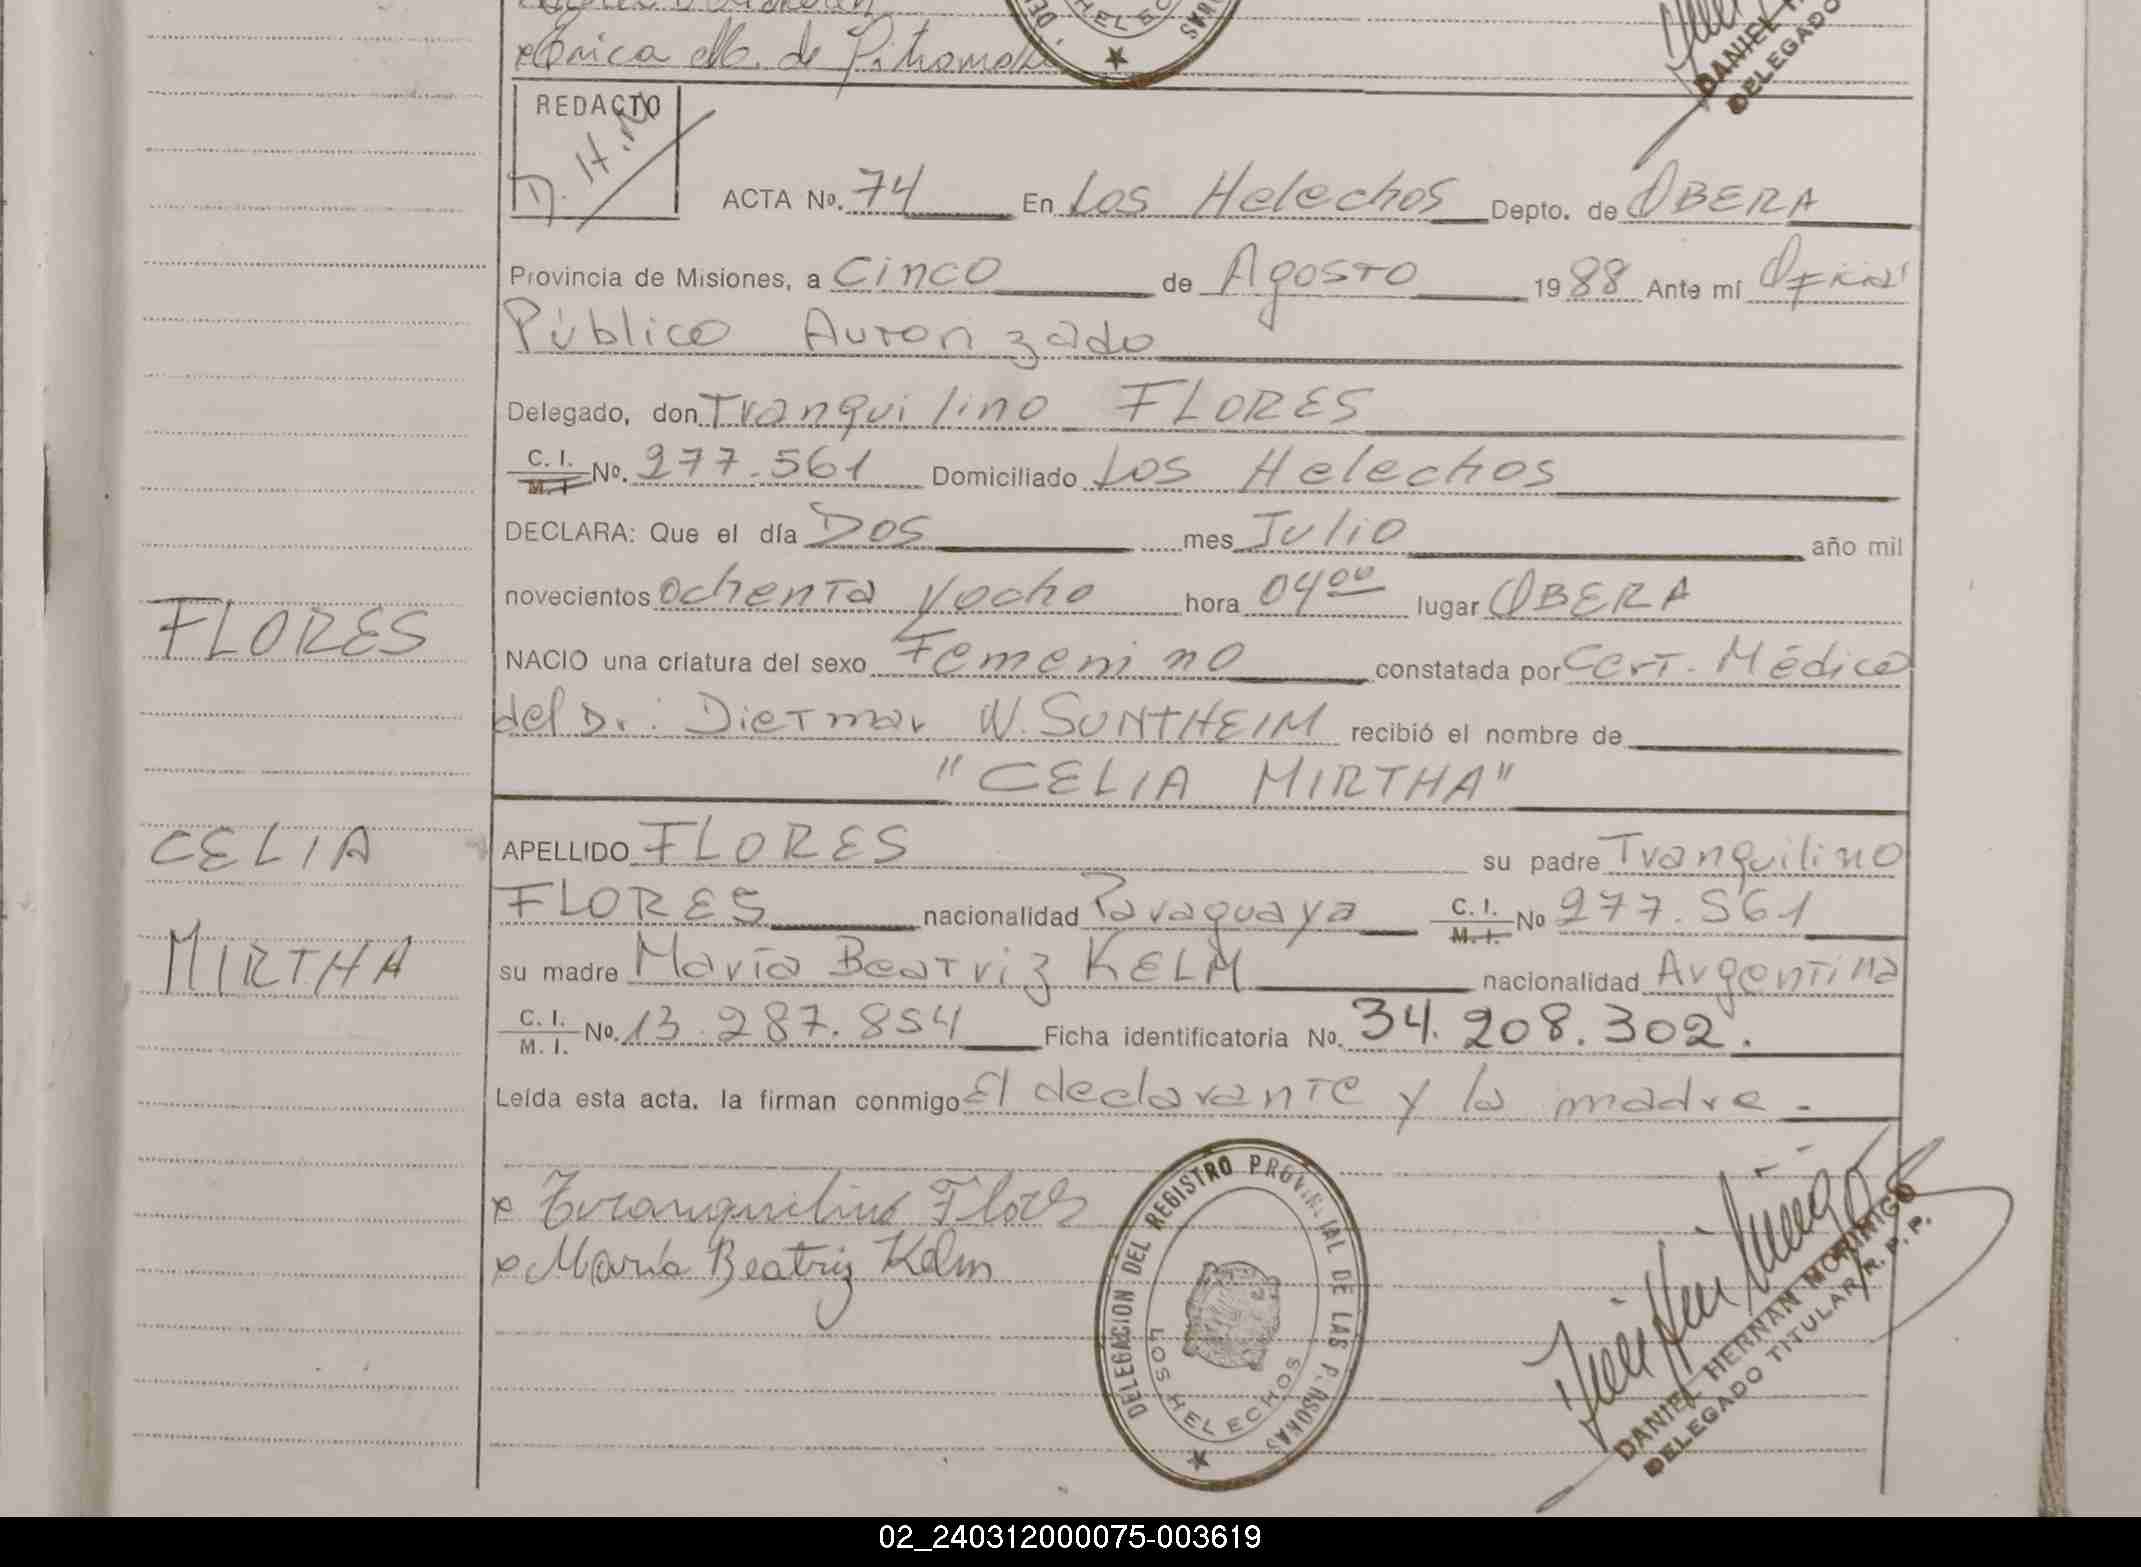 Mónica M. de
DELEGADO
REDACTO
D. H. M.
ACTA No. 74 En Los Helechos Depto. de OBERA
Provincia de Misiones, a Cinco de Agosto 1988 Ante mí Oficial
Público Autorizado
Delegado, don Tranquilino FLORES
C. I. M. I. No. 277.561 Domiciliado Los Helechos
DECLARA: Que el día Dos mes Julio año mil
novecientos ochenta y ocho hora 04 00 lugar OBERA
NACIO una criatura del sexo Femenino constatada por Cert. Médico
del Dr. Dietmar W. SUNTHEIM recibió el nombre de
"CELIA MIRTHA"
APELLIDO FLORES su padre Tranquilino
FLORES nacionalidad Paraguaya C. I. M. I. No 277.561
su madre María Beatriz KELM nacionalidad Argentina
C. I. M. I. No. 13.287.854 Ficha identificatoria No. 34.208.302.
Leída esta acta. la firman conmigo El declarante y la madre.-
x Tranquilino Flores
x María Beatriz Kelm
FLORES
CELIA
MIRTHA
DELEGACION DEL REGISTRO PROVINCIAL DE LAS PERSONAS
LOS HELECHOS
DANIEL HERNAN MORINIGO
DELEGADO TITULAR R. P. P.
02_240312000075-003619